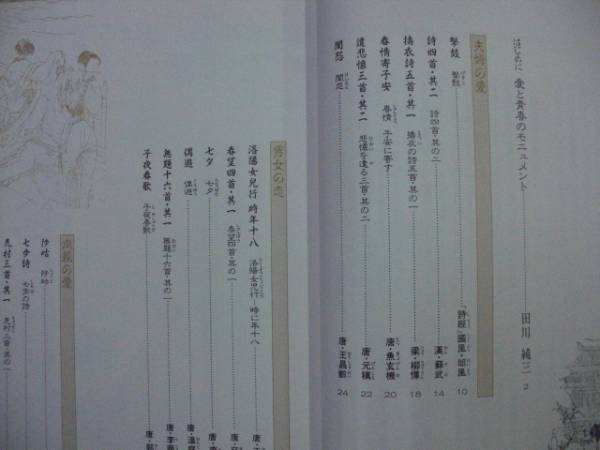 はじめに 愛と青春のモニュメント 田川純三 2
夫婦の愛
撃鼓 撃鼓 『詩經』國風・邶風 10
詩四首・其二 詩四首・其の二 漢・蘇武 14
擣衣詩五首・其一 擣衣の詩五首・其の一 梁・柳惲 18
春情寄子安 春情 子安に寄す 唐・魚玄機 20
遣悲懷三首・其二 悲懷を遣る三首・其の二 唐・元稹 22
閨怨 閨怨 唐・王昌齡 24
男女の恋
洛陽女兒行 時年十八 洛陽女児行―時に年十八
春望四首・其一 春望四首・其の一
七夕 七夕
偶遊 偶遊
無題十六首・其一 無題十六首・其の一
子夜春歌 子夜春歌
陟岵 陟岵
七步詩 七歩の詩
羌村三首・其一 羌村三首・其の一